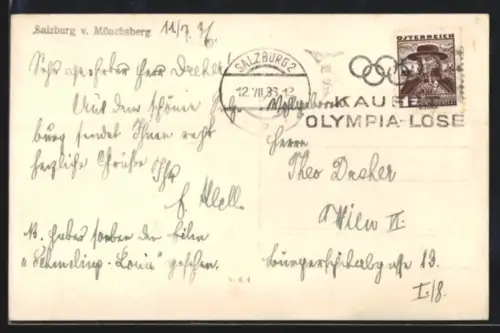 Salzburg v. Mönchsberg
11/7 36.
Sehr geehrter Herr Dreher!
Aus dem schönen Salz-
burg sendet Ihnen recht
herzliche Grüße Ihr
N. habe soeben den Film
"Schmeling-Louis" gesehen.
SALZBURG 2
12.VII.36
ÖSTERREICH
KAUFET
OLYMPIA-LOSE
Wohlgeboren
Herrn
Theo Dreher
Wien VI.
Bürgerspitalgasse 13.
I/8.